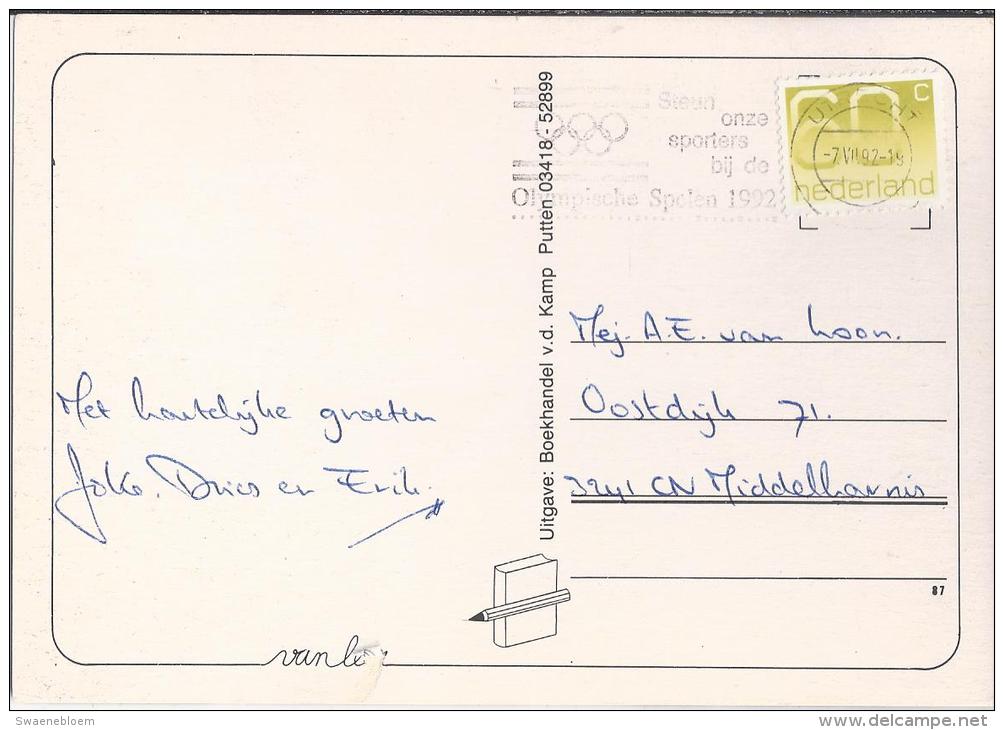 Steun
onze
sporters
bij de
Olympische Spelen 1992
60 c
nederland
-7.VII.92-19
Uitgave: Boekhandel v.d. Kamp Putten 03418 - 52899
Mej. A.E. van Loon.
Oostdijk 71.
3241 CN Middelharnis
Met hartelijke groeten
Joke, Dries en Erik.
87
van
Swaenebloem
www.delcampe.net